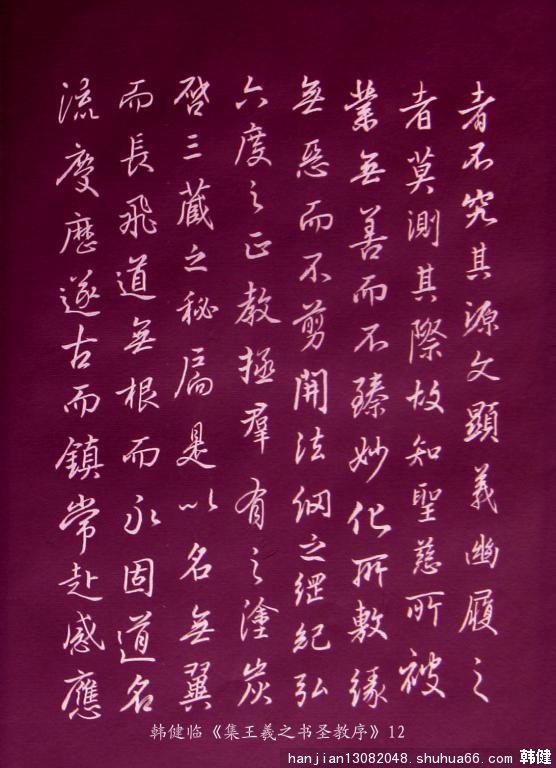 者不究其源文顯義幽履之
者莫測其際故知聖慈所被
業無善而不臻妙化所敷緣
無惡而不剪開法網之綱紀弘
六度之正教拯羣有之塗炭
啓三藏之秘扃是以名無翼
而長飛道無根而永固道名
流慶歷遂古而鎮常赴感應
韩健临《集王羲之书圣教序》12
hanjian13082048.shuhua66.com 韩健